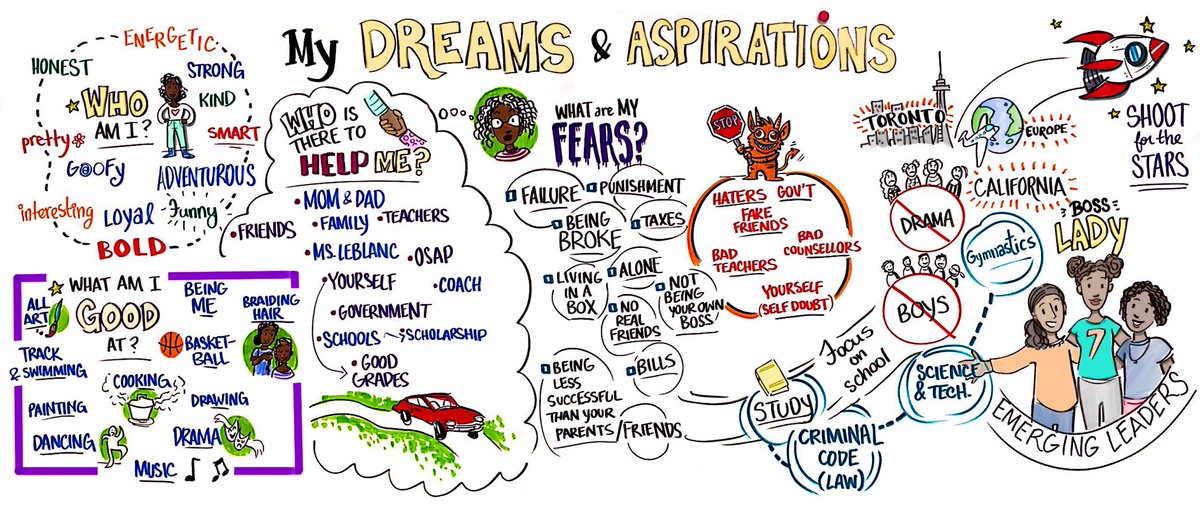 My DREAMS & ASPIRATIONS
ENERGETIC
HONEST
STRONG
WHO
AM I?
KIND
pretty
SMART
GOOFY
ADVENTUROUS
interesting
Loyal
Funny
BOLD
WHAT AM I
GOOD
AT?
ALL
ART
BEING
ME
BRAIDING
HAIR
BASKET-
BALL
TRACK
& SWIMMING
COOKING
PAINTING
DRAWING
DANCING
DRAMA
MUSIC
WHO IS
THERE TO
HELP ME?
• MOM & DAD
• FAMILY
• TEACHERS
• FRIENDS
• MS. LEBLANC
• OSAP
• YOURSELF
• COACH
• GOVERNMENT
• SCHOOLS
SCHOLARSHIP
• GOOD
GRADES
WHAT are MY
FEARS?
FAILURE
PUNISHMENT
BEING
BROKE
TAXES
LIVING
IN A
BOX
ALONE
NO
REAL
FRIENDS
NOT
BEING
YOUR OWN
BOSS
BEING
LESS
SUCCESSFUL
THAN YOUR
PARENTS/FRIENDS
BILLS
STOP
HATERS
GOV'T
FAKE
FRIENDS
BAD
TEACHERS
BAD
COUNSELLORS
YOURSELF
(SELF DOUBT)
STUDY
Focus
on
school
CRIMINAL
CODE
(LAW)
SCIENCE
& TECH.
Gymnastics
DRAMA
BOYS
TORONTO
EUROPE
CALIFORNIA
SHOOT
for the
STARS
BOSS
LADY
7
EMERGING LEADERS